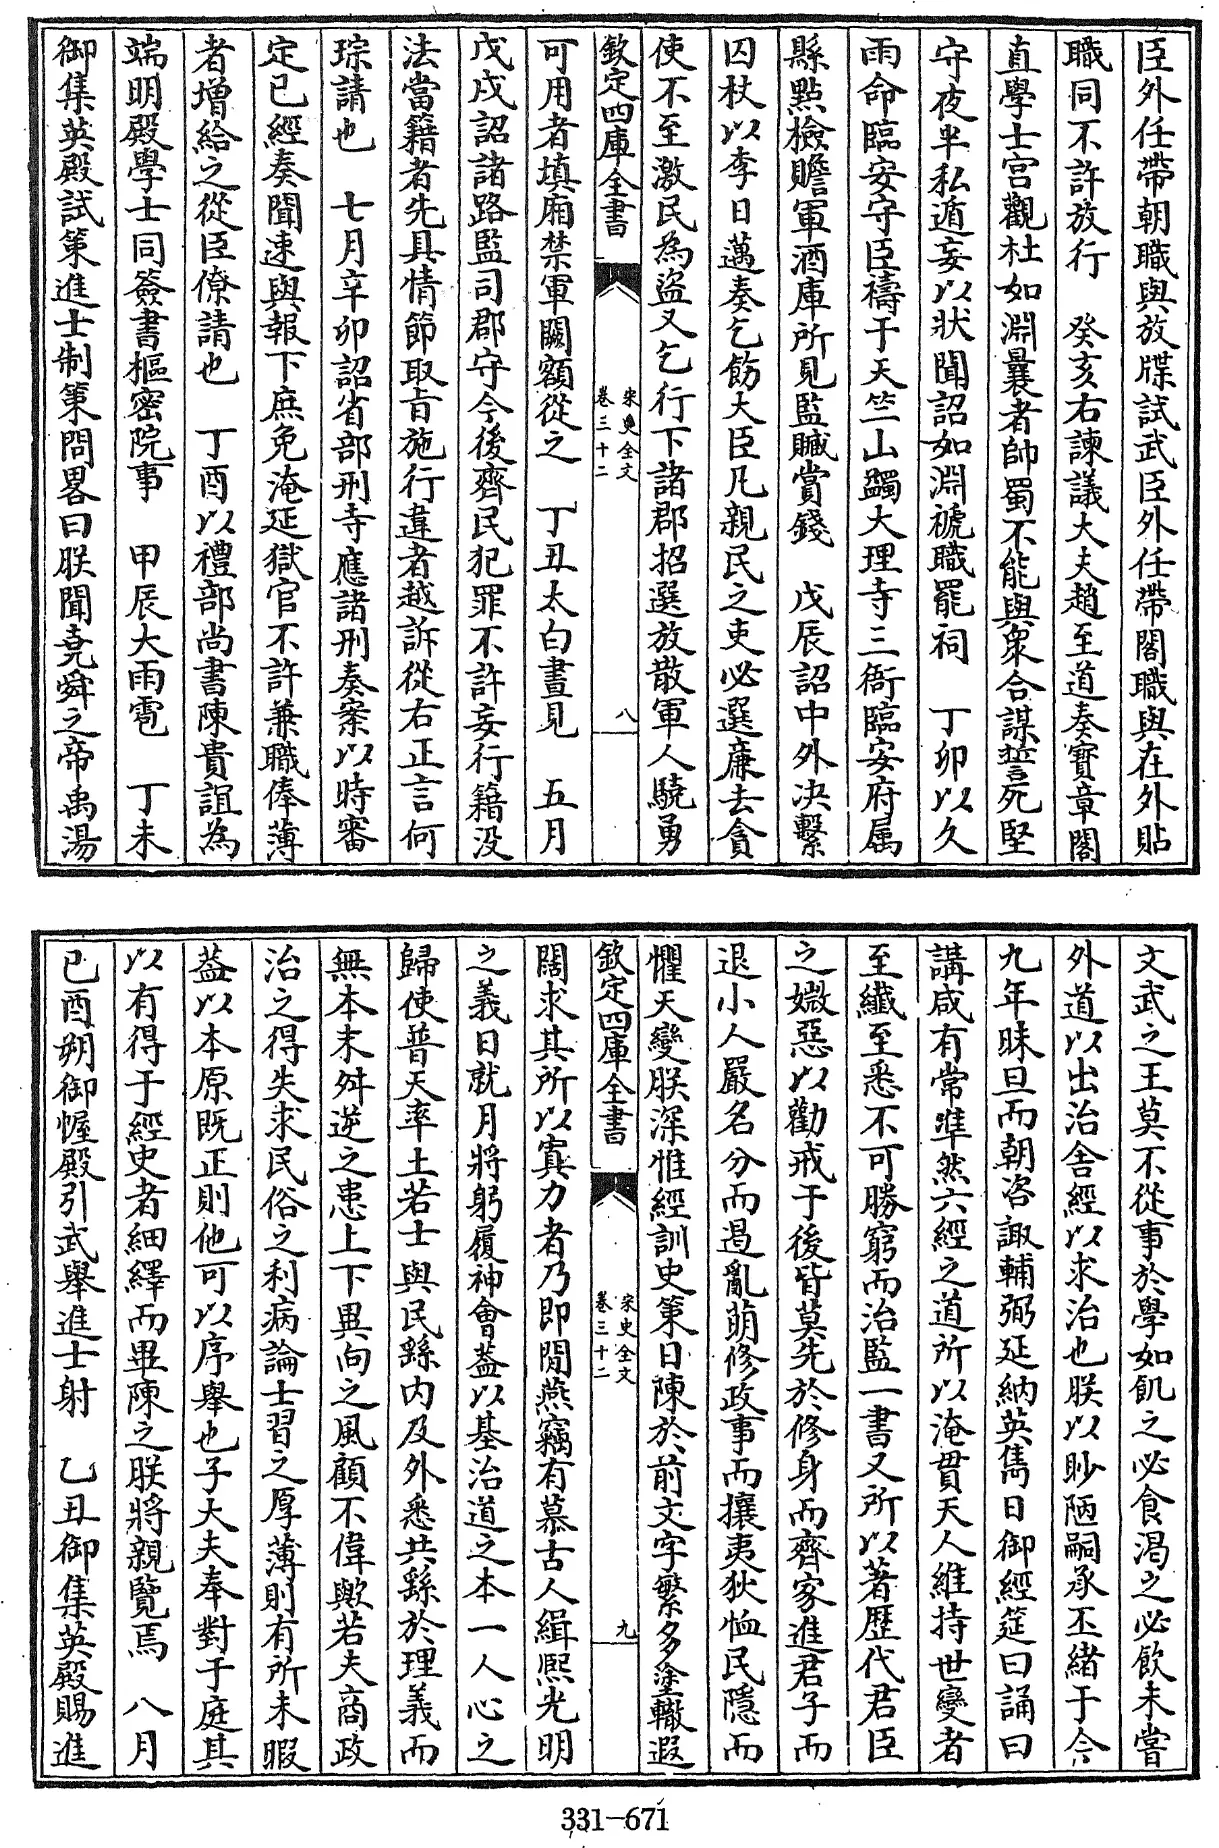 臣外任帶朝職與放牒試武臣外任帶閣職與在外貼
職同不許放行　癸亥右諫議大夫趙至道奏寳章閣
直學士宫觀杜如淵曩者帥蜀不能與衆合謀誓死堅
守夜半私遁妄以狀聞詔如淵褫職罷祠　丁卯以久
雨命臨安守臣禱于天竺山蠲大理寺三衙臨安府属
縣點檢贍軍酒庫所見監贓賞錢　戊辰詔中外决繫
囚杖以李日邁奏乞飭大臣凡親民之吏必選廉去貪
使不至激民為盗又乞行下諸郡招選放散軍人驍勇
欽定四庫全書
宋史全文
卷三十二
八
可用者填廂禁軍闕額從之　丁丑太白晝見　五月
戊戌詔諸路監司郡守今後齊民犯罪不許妄行籍没
法當籍者先具情節取旨施行違者越訴從右正言何
琮請也　七月辛卯詔省部刑寺應諸刑奏案以時審
定已經奏聞速與報下庶免淹延獄官不許兼職俸薄
者增給之從臣僚請也　丁酉以禮部尚書陳貴誼為
端明殿學士同簽書樞密院事　甲辰大雨雹　丁未
御集英殿試策進士制策問畧曰朕聞堯舜之帝禹湯
文武之王莫不從事於學如飢之必食渴之必飲未嘗
外道以出治舍經以求治也朕以眇陋嗣承丕緒于今
九年昧旦而朝咨諏輔弼延納英雋日御經筵曰誦曰
講咸有常準然六經之道所以淹貫天人維持世變者
至纎至悉不可勝窮而治監一書又所以著歷代君臣
之媺惡以勸戒于後皆莫先於修身而齊家進君子而
退小人嚴名分而遏亂萌修政事而攘夷狄恤民隱而
懼天變朕深惟經訓史策日陳於前文字繁多塗轍遐
欽定四庫全書
宋史全文
卷三十二
九
闊求其所以寘力者乃即閒燕竊有慕古人緝熙光明
之義日就月將躬履神會葢以基治道之本一人心之
歸使普天率土若士與民繇内及外悉共繇於理義而
無本末舛逆之患上下異向之風顧不偉歟若夫商政
治之得失求民俗之利病論士習之厚薄則有所未暇
葢以本原既正則他可以序舉也子大夫奉對于庭其
以有得于經史者細繹而畢陳之朕將親覽焉　八月
已酉朔御幄殿引武舉進士射　乙丑御集英殿賜進
331-671